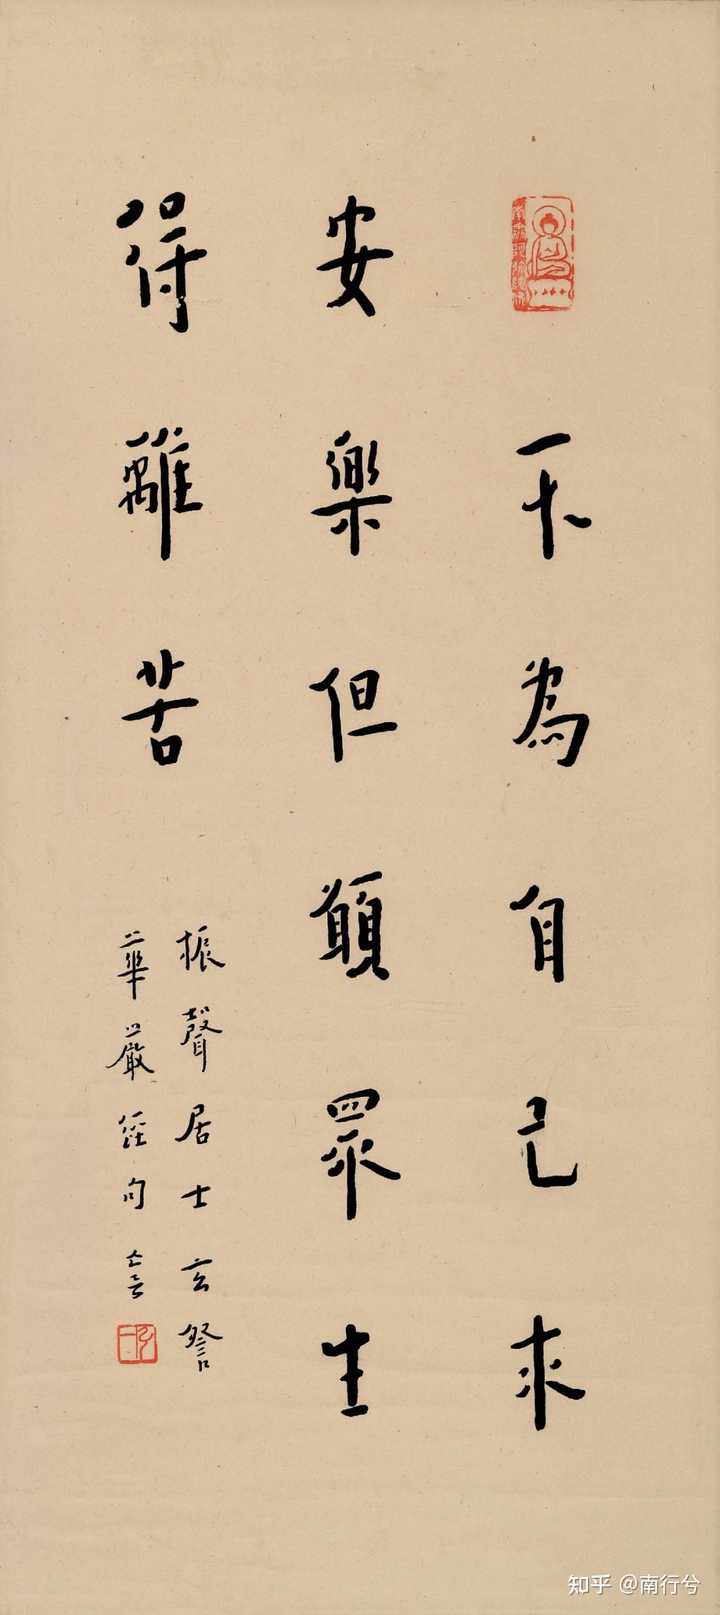 不為自己求
安樂但願眾生
得離苦
振聲居士玄詧
華嚴經句
弘一
知乎 @南行兮